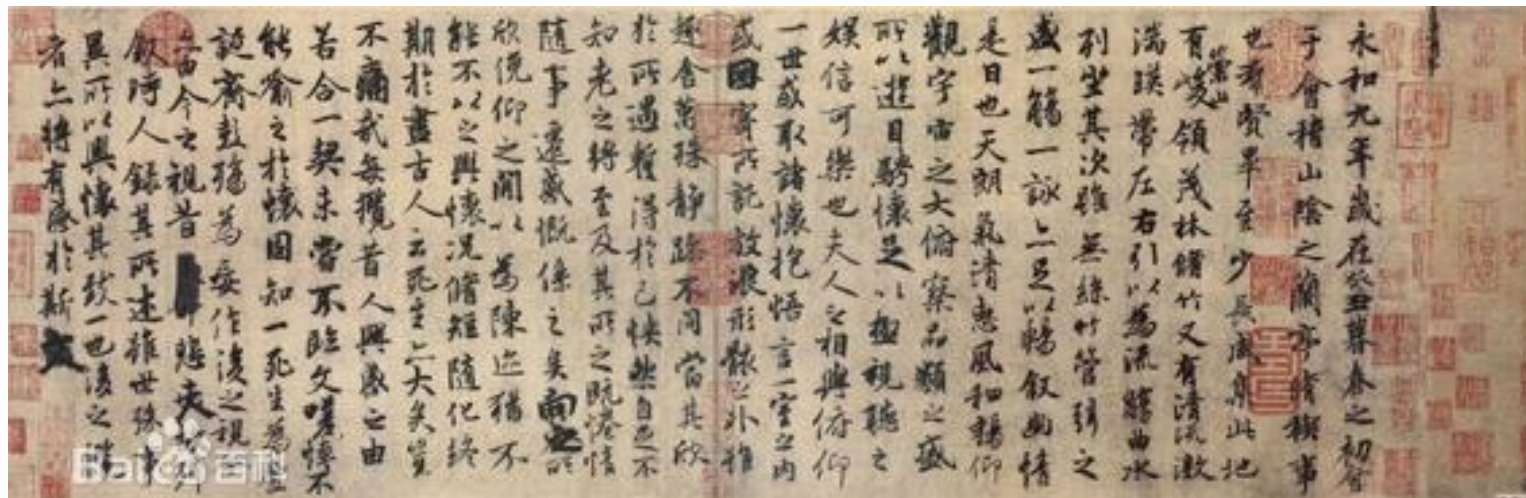 永和九年歲在癸丑暮春之初會
于會稽山陰之蘭亭脩禊事
也羣賢畢至少長咸集此地
有崇山峻領茂林脩竹又有清流激
湍暎帶左右引以為流觴曲水
列坐其次雖無絲竹管弦之
盛一觴一詠亦足以暢敘幽情
是日也天朗氣清惠風和暢仰
觀宇宙之大俯察品類之盛
所以遊目騁懷足以極視聽之
娛信可樂也夫人之相與俯仰
一世或取諸懷抱悟言一室之內
或因寄所託放浪形骸之外雖
趣舍萬殊靜躁不同當其欣
於所遇蹔得於己怏然自足不
知老之將至及其所之既惓情
隨事遷感慨係之矣向之所
欣俛仰之閒以為陳迹猶不
能不以之興懷況脩短隨化終
期於盡古人云死生亦大矣豈
不痛哉每攬昔人興感之由
若合一契未嘗不臨文嗟悼不
能喻之於懷固知一死生為虛
誕齊彭殤為妄作後之視今
亦由今之視昔悲夫故列
敘時人錄其所述雖世殊事
異所以興懷其致一也後之攬
者亦將有感於斯文
Baidu百科